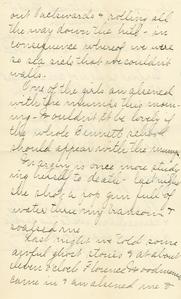 out backwards & rolling all
the way down the hill - in
consequence whereof we were
so stiff that we couldn't
walk.
One of the girls answered
with the mumps this mor-
ning - & wouldn't it be lovely if
the whole Bennett school
should appear with the mumps
is once more study
ing herself to death - last night
she shot a pop gun full of
water thru my transom &
soaked me
Last night we told some
awful ghost stories & at about
eleven o'clock Florence &
came in & me &